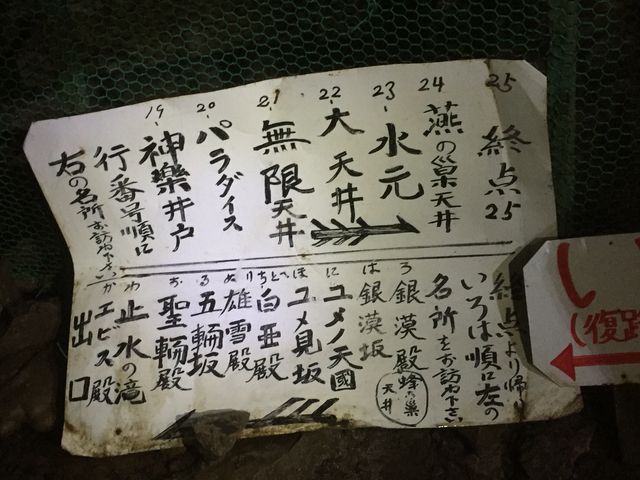 25 終点25
24 燕の巣天井
23 水元
22 大天井
21 無限天井
20 パラダイス
19 神樂井戸
行番号順に
右の名所お訪ね下さい
終点より帰り
いろは順に左の
名所をお訪ね下さい
ろ 銀漠殿
蜂の巣
天井
は 銀漠坂
に ユメノ天國
ほ ユメ見坂
へとち 白亜殿
りぬ 雄雪殿
る 五輪坂
お 聖輪殿
わ 止水の滝
か エビス殿
出口
(復路